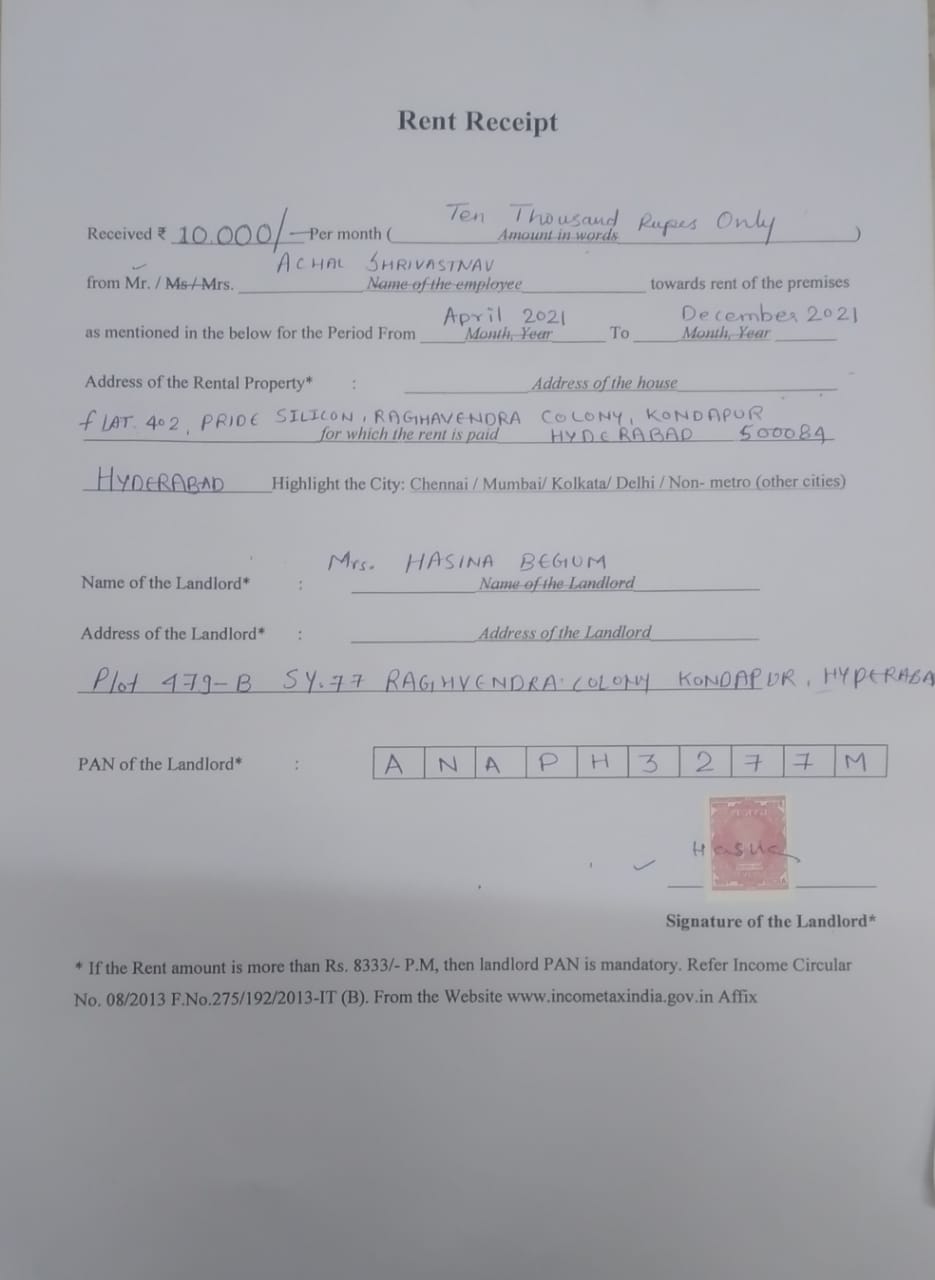 Rent Receipt
Ten Thousand Rupes Only
Received ₹ 10.000/- Per month ( Amount in words )
ACHAL SHRIVASTNAV
from Mr. / Ms / Mrs. Name of the employee towards rent of the premises
April 2021 December 2021
as mentioned in the below for the Period From Month, Year To Month, Year
Address of the Rental Property* : Address of the house
fLAT. 402, PRIDE SILICON, RAGHAVENDRA COLONY, KONDAPUR
for which the rent is paid HYDERABAD 500084
HYDERABAD Highlight the City: Chennai / Mumbai/ Kolkata/ Delhi / Non- metro (other cities)
Mrs. HASINA BEGUM
Name of the Landlord* : Name of the Landlord
Address of the Landlord* : Address of the Landlord
Plot 479-B SY.77 RAGHVENDRA COLONY KONDAPUR, HYDERABA
PAN of the Landlord* : A N A P H 3 2 7 7 M
Signature of the Landlord*
* If the Rent amount is more than Rs. 8333/- P.M, then landlord PAN is mandatory. Refer Income Circular
No. 08/2013 F.No.275/192/2013-IT (B). From the Website www.incometaxindia.gov.in Affix